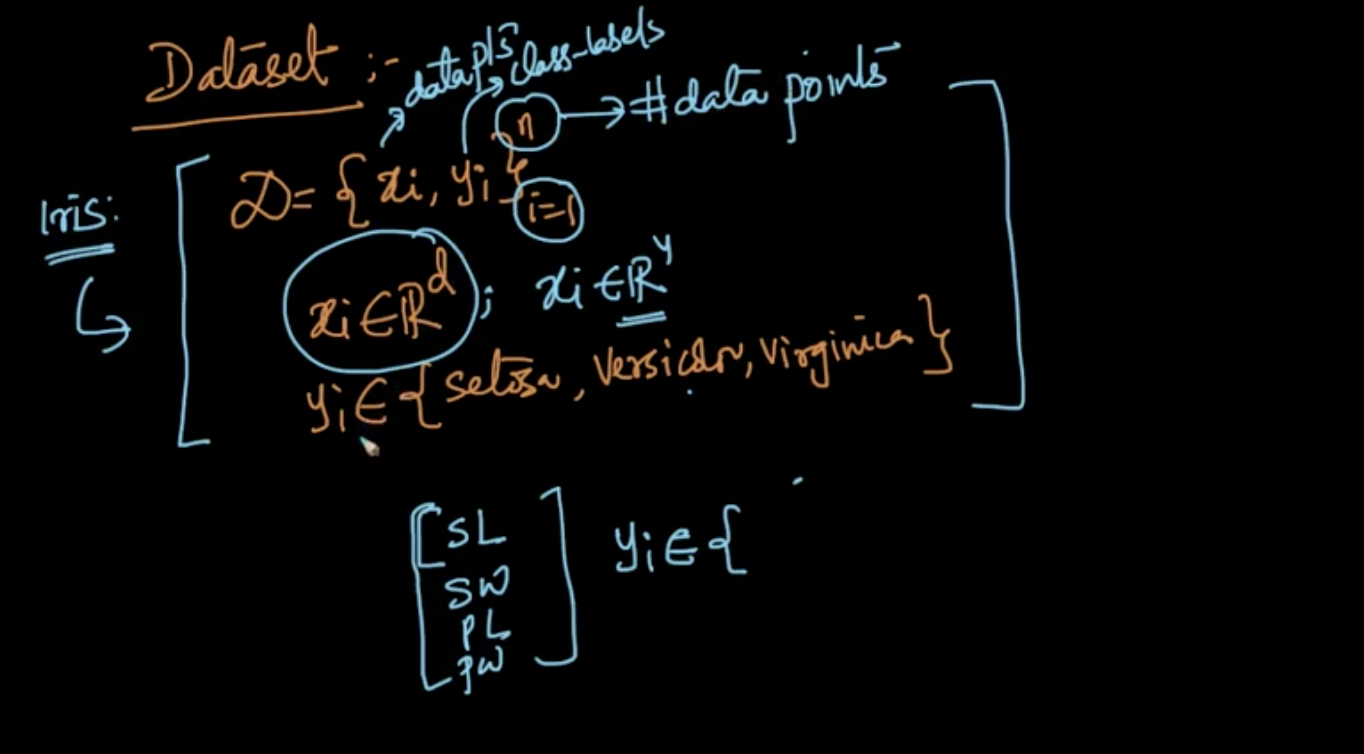 Dataset :-
datapts class-labels
n → #data points
Iris: D = { xi, yi } i=1
xi ∈ ℝ^d ; xi ∈ ℝ^4
yi ∈ { setosa, versicolor, virginica }
[ SL ] yi ∈ {
SW
PL
PW